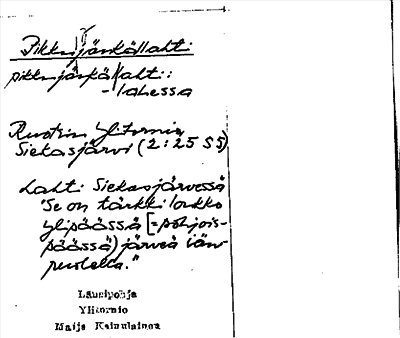 Pikkujänkällahti
pikkujänkällahti:
-lahessa
Ruotsin Ylitornio
Siekasjärvi (2:25 SS)
Lahti Siekasjärvessä
"Se on tärkki loukko
ylipäässä [=pohjois-
päässä) järveä iän
puolella."
Länsipohja
Ylitornio
Maija Kainulainen